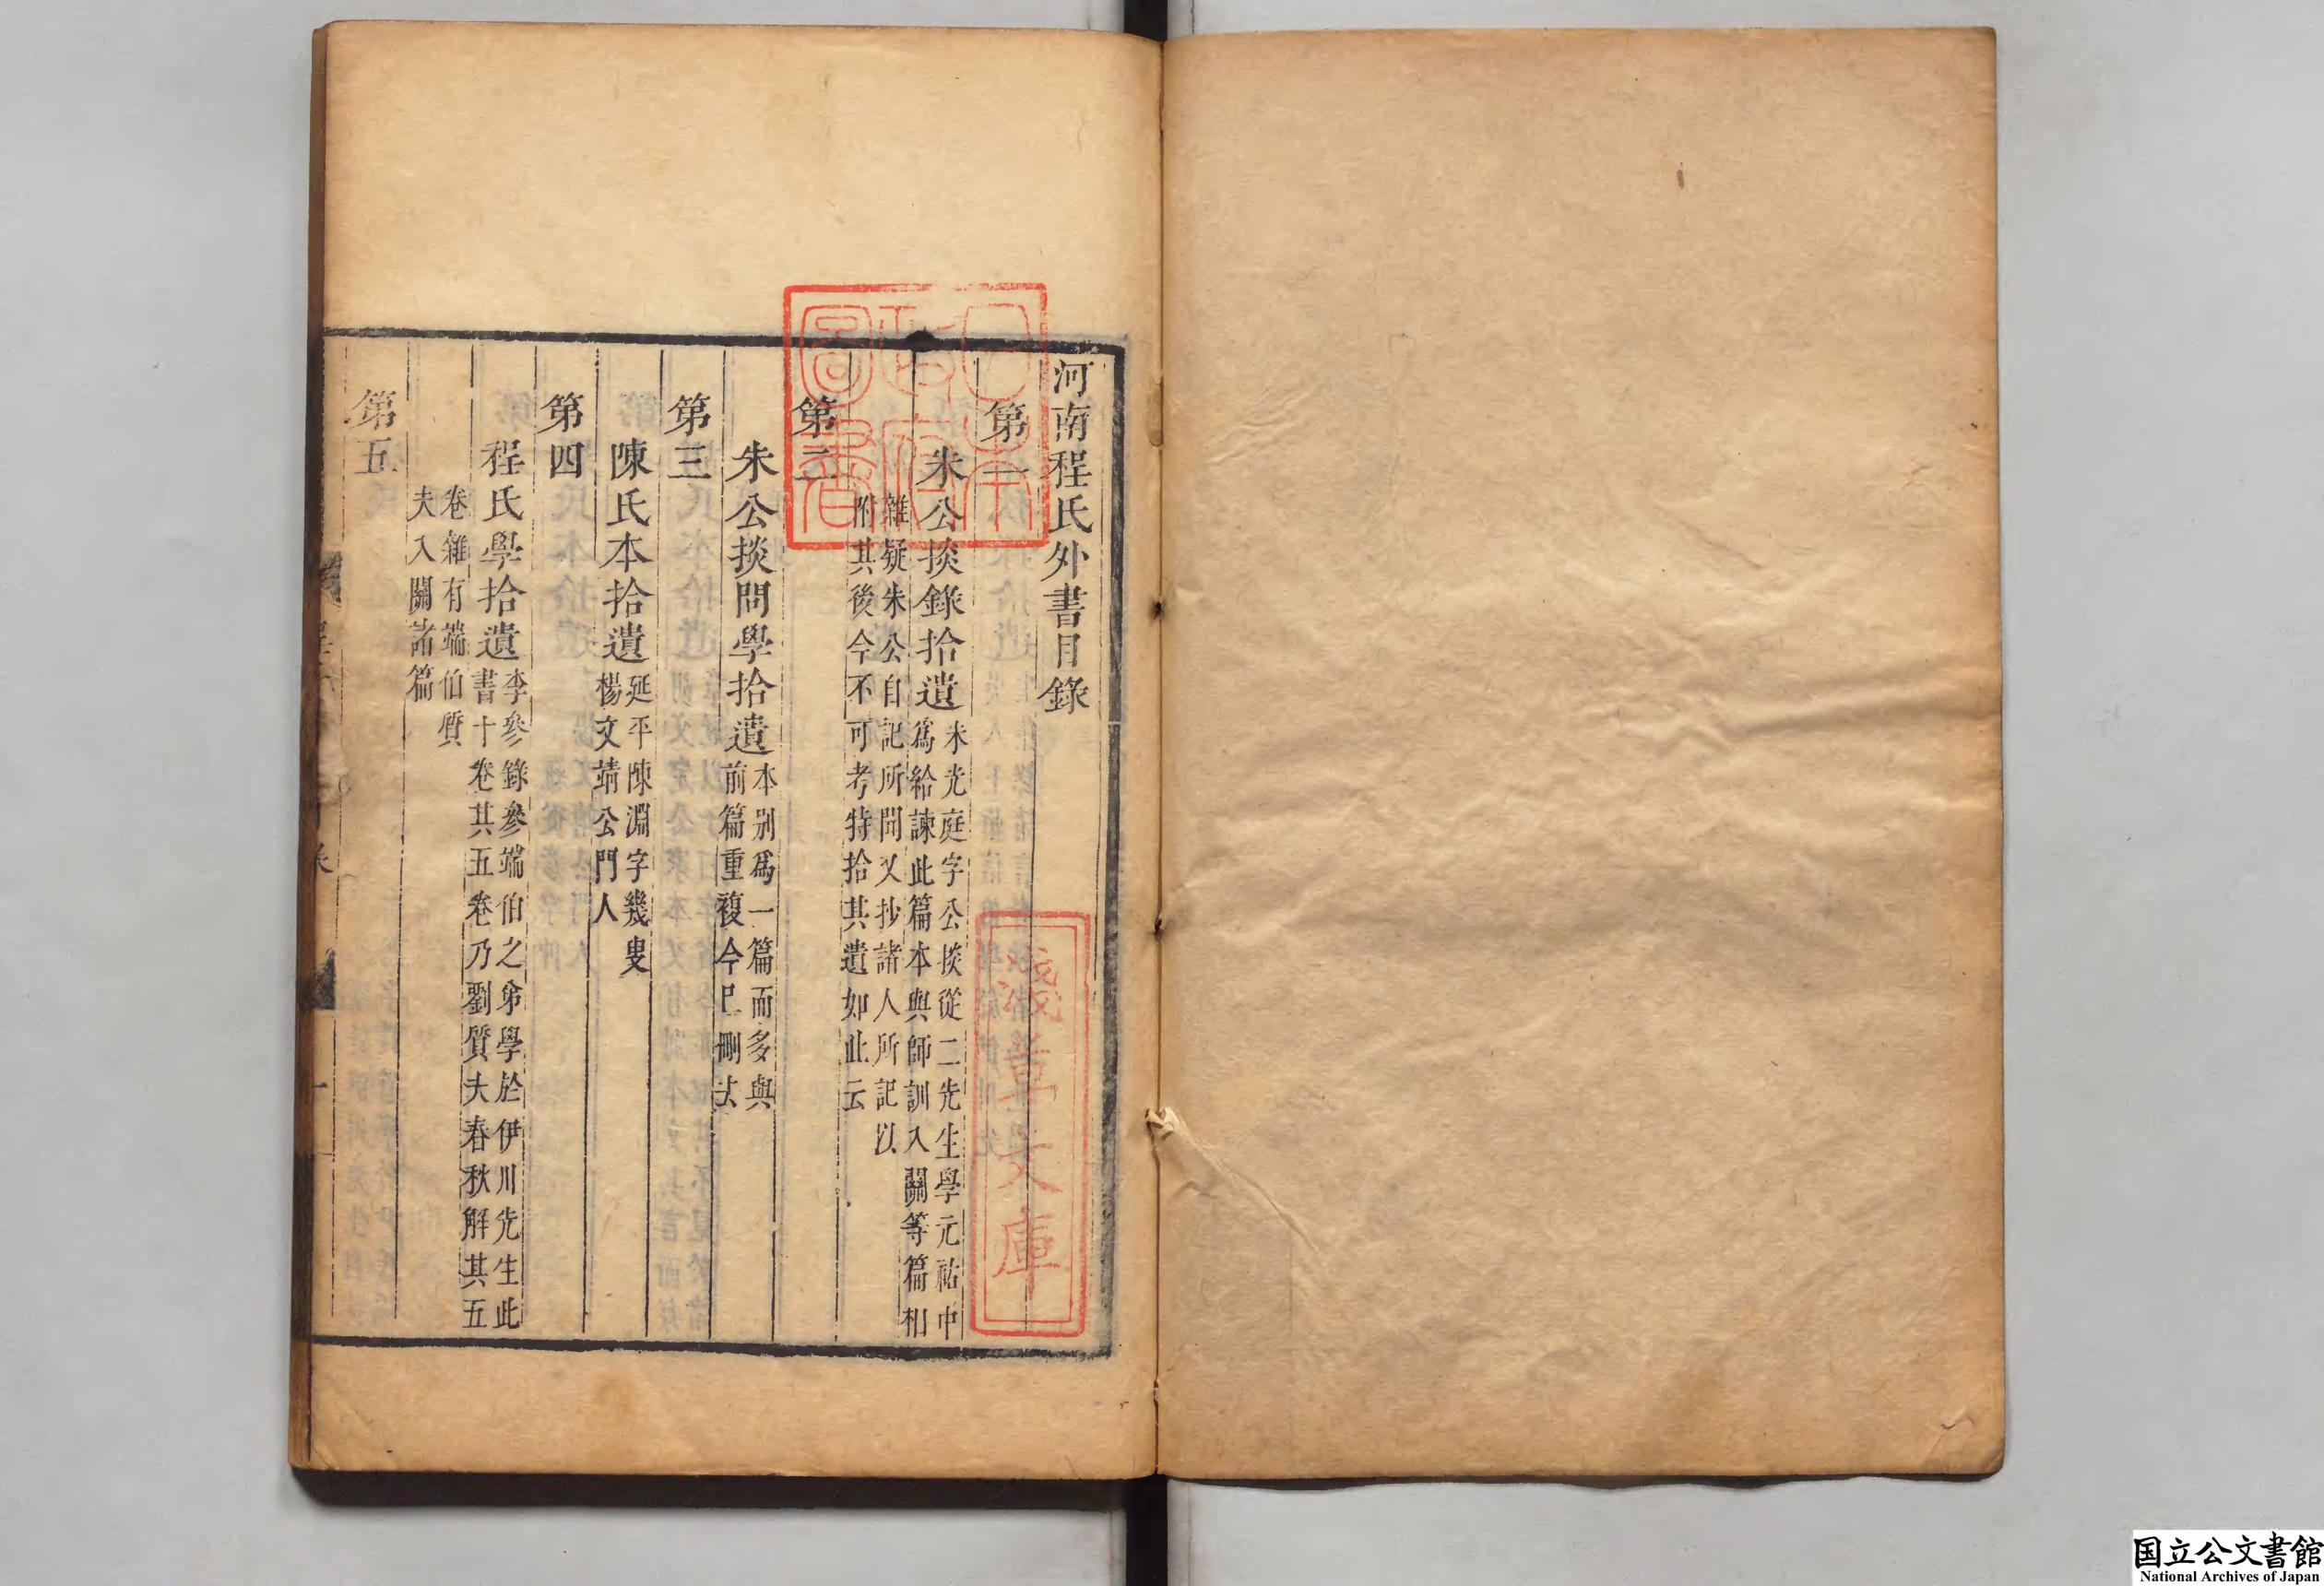 河南程氏外書目錄
第一
朱公掞錄拾遺
朱光庭字公掞從二先生學元祐中
爲給諫此篇本與師訓入關等篇相
雜疑朱公自記所聞又抄諸人所記以
附其後今不可考特拾其遺如此云
第二
朱公掞問學拾遺
本别爲一篇而多與
前篇重複今已刪去
第三
陳氏本拾遺
延平陳淵字幾叟
楊文靖公門人
第四
程氏學拾遺
李參錄參端伯之弟學於伊川先生此
書十卷其五卷乃劉質夫春秋解其五
卷雜有端伯質
夫入關諸篇
第五
日本政府圖書
淺草文庫
国立公文書館
National Archives of Japan